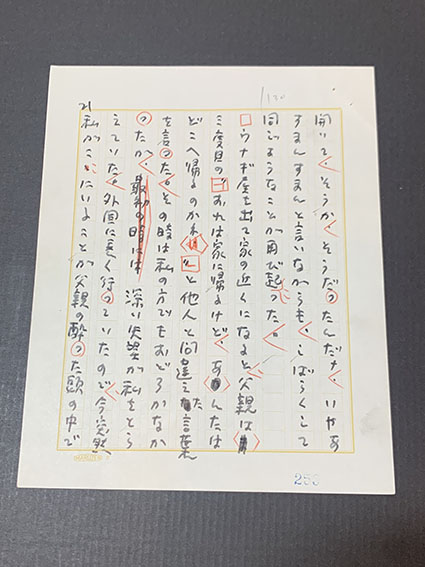 聞いて、そうか、そうだったんだな、いやあ
すまんすまんと言いながらも、しばらくして
同じようなことが再び起った。
ウナギ屋を出て家の近くになると、父親は
三度目の「おれは家に帰るけど、あんたは
どこへ帰るのかね」と他人と間違えた言葉
を言った。その時は私の方でもおどろかなか
ったが、最初の時には深い失望が私をとら
えていた。外国に長く行っていたので、今突然
私がここにいることが父親の酔った頭の中で
21